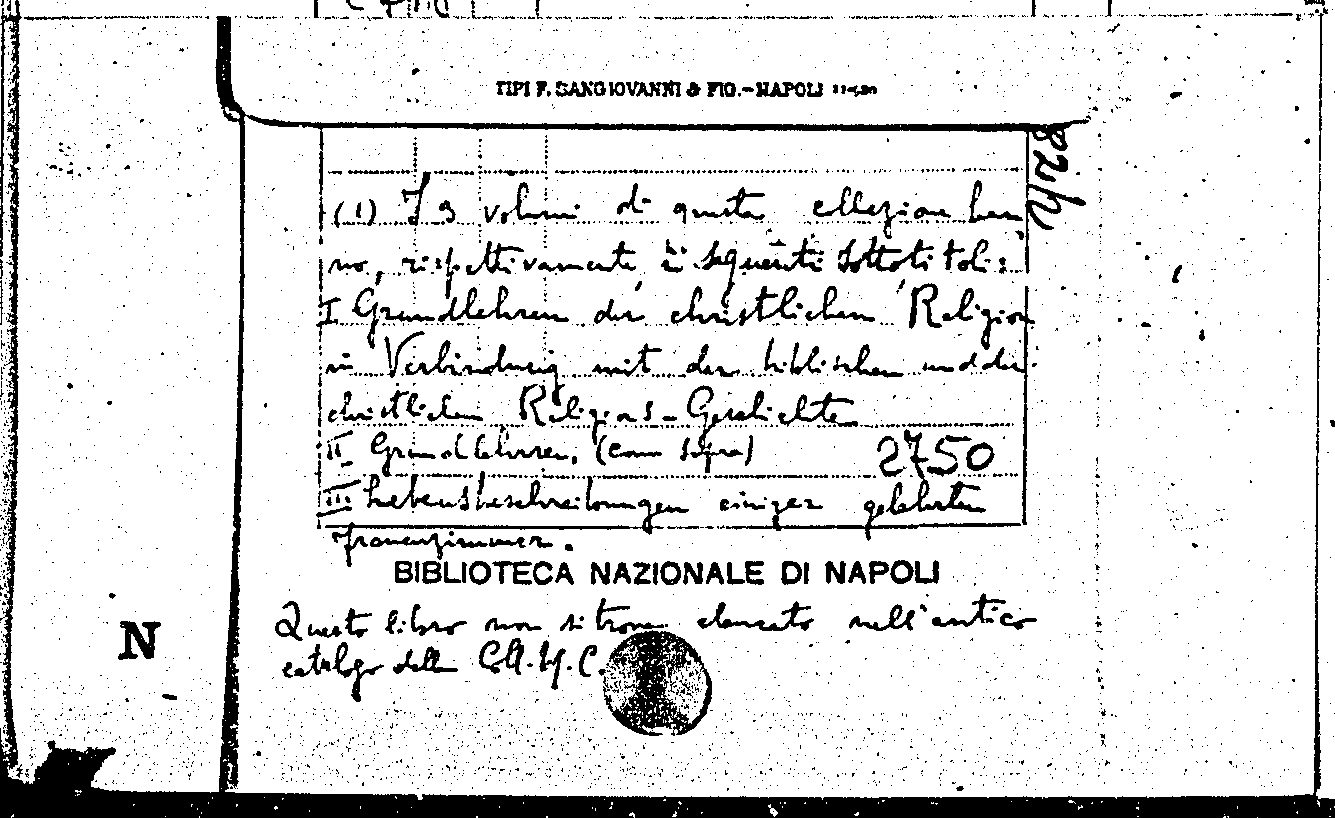 TIPI F. SANGIOVANNI & FIG. - NAPOLI
82/h
(1) I 3 volumi di questa collezione han
no, rispettivamente i seguenti sottotitoli:
I Grundlehren der christlichen Religion
in Verbindung mit der biblischen und der
christlichen Religions-Geschichte
II Grundlehren, (come sopra)
2750
III Lebensbeschreibungen einiger gelehrten
Frauenzimmer.
BIBLIOTECA NAZIONALE DI NAPOLI
Questo libro non si trova elencato nell'antico
catalogo della
N